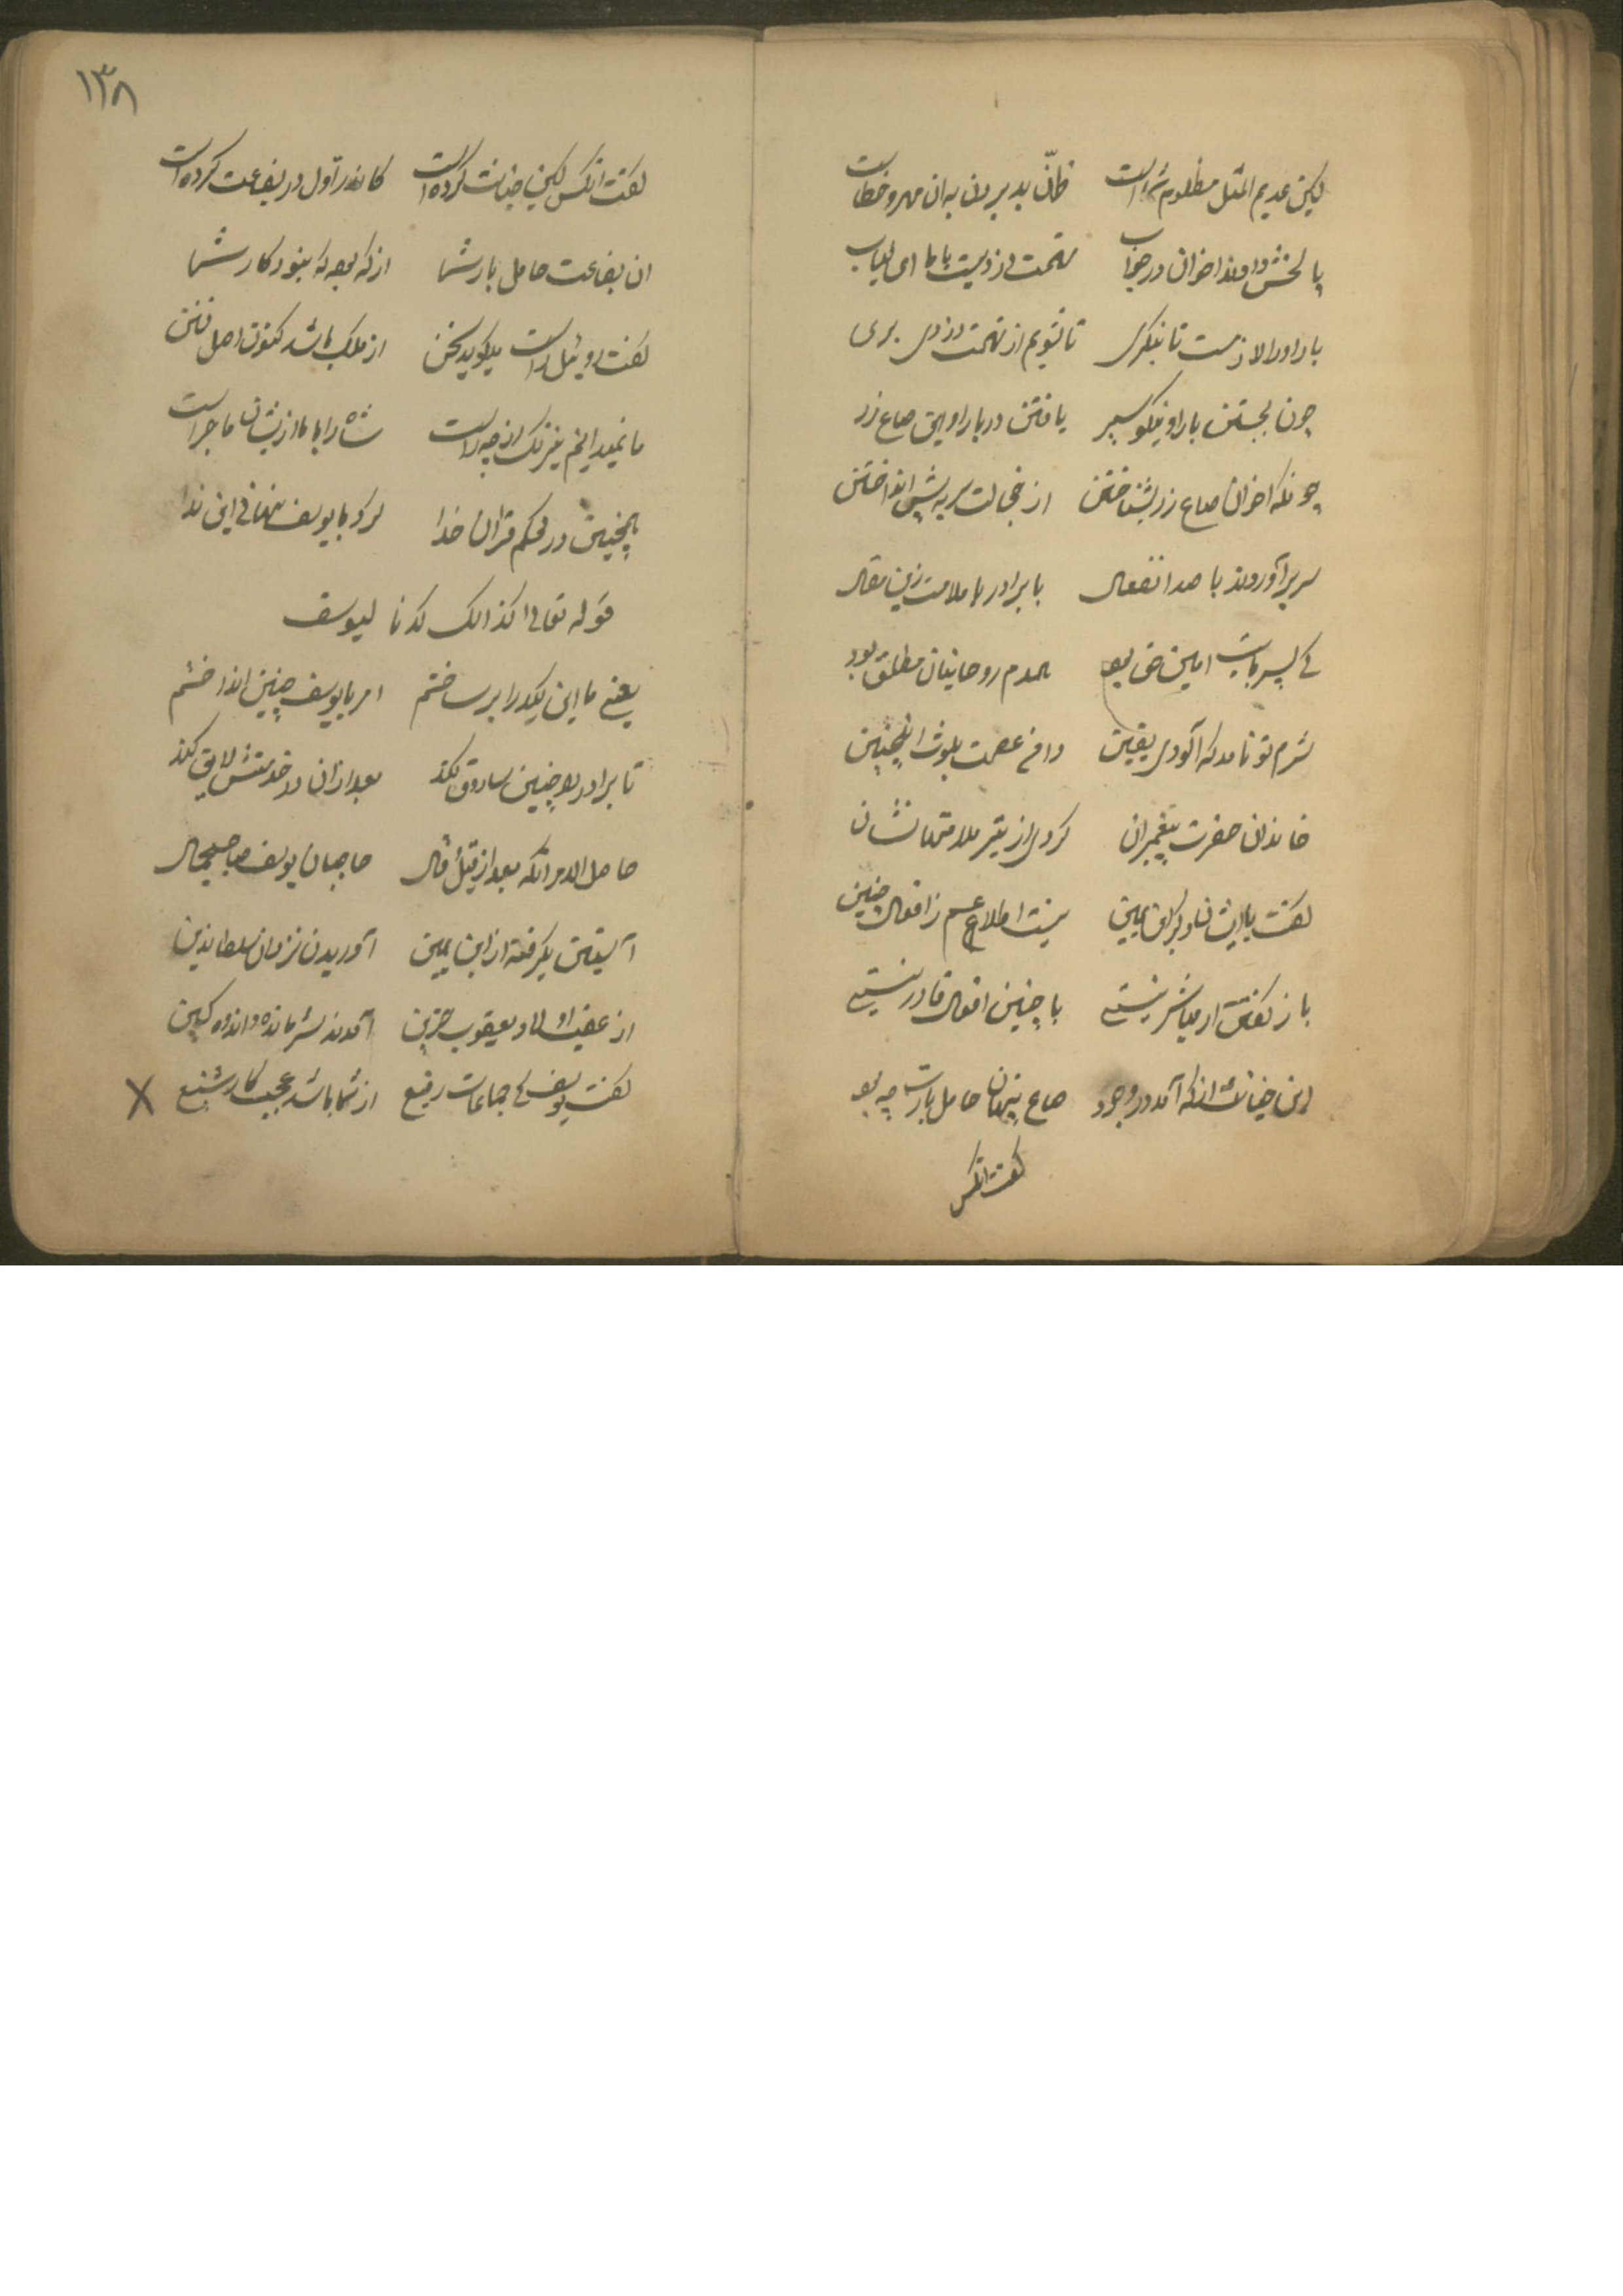 لیکن عدیم المثل مظلوم شماست ظنّ بد بردن به ان مهرو خطاست
پا لخش دادند اخوان در جواب تهمت دزدیست با ما ای لباب
بار او را لازمست تا بنگری تا شویم از تهمت دزدی بری
چون بجستن بار او نیکو سیر یافتن در بار او این صاع زر
چونکه اخوان صاع زر بشناختن از خجالت سر به پیش انداختن
سر برآوردند با صد انفعال با برادر با ملامت زین مقال
کی پسر بابت امین حق بود همدم روحانیان مطلق بود
شرم تو نامد که آلودی یقین دامن عصمت بلوث اینچنین
خاندان حضرت پیغمبران کردی از تیر ملامتها نشان
گفت با ایشان ابن یمین نیست اطلاعم ز افعال چنین
باز گفتن ار مباشر نیستی با چنین افعال قادر نیستی
این خیانت از که آمد در وجود صاع پنهان حامل بارت چه بود
گفت انکس
۱۳۸
گفت انکس لیکن خیانت کرده است کاندر اول در بضاعت کرده است
ان بضاعت حامل بار شما از که بود که بنود کار شما
گفت روئیل راست میگوید سخن از ملک باشد کنون اصل فتن
ما نمیدانیم نیرنگ از چه راست شاه را با ما ازینشان ماجراست
همچنین در محکم قران خدا کرد با یوسف نهانی این ندا
قوله تعالی کذالک کدنا لیوسف
یعنی ما این کید را بر ساختم امر با یوسف چنین انداختم
تا برادر را چنین سارق کند بعد ازان در خدمتش لایق کند
حاصل الامر انکه بعد از قیل قال حاجبان یوسف صاحبجمال
آستین بگرفته از ابن یمین آوریدن نزد ان سلطان دین
از عقب اولاد یعقوب حزین آمدند شرمانده و اندوه کین
گفت یوسف کی جماعات رفیع از شما باشد عجب کار شنیع